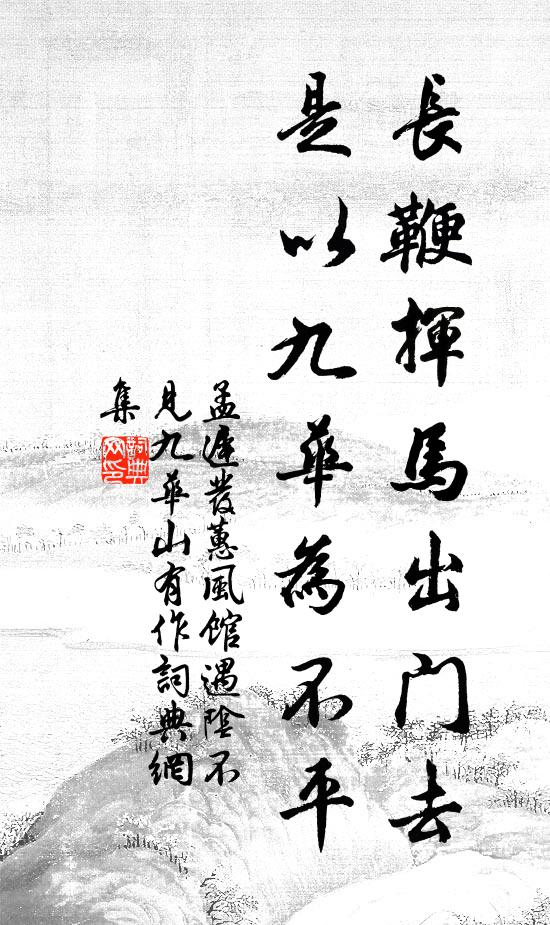 長鞭揮馬出門去
是以九華為不平
孟遲發蕙風館遇陰不
見九華山有作詞典網
集
詞典網印